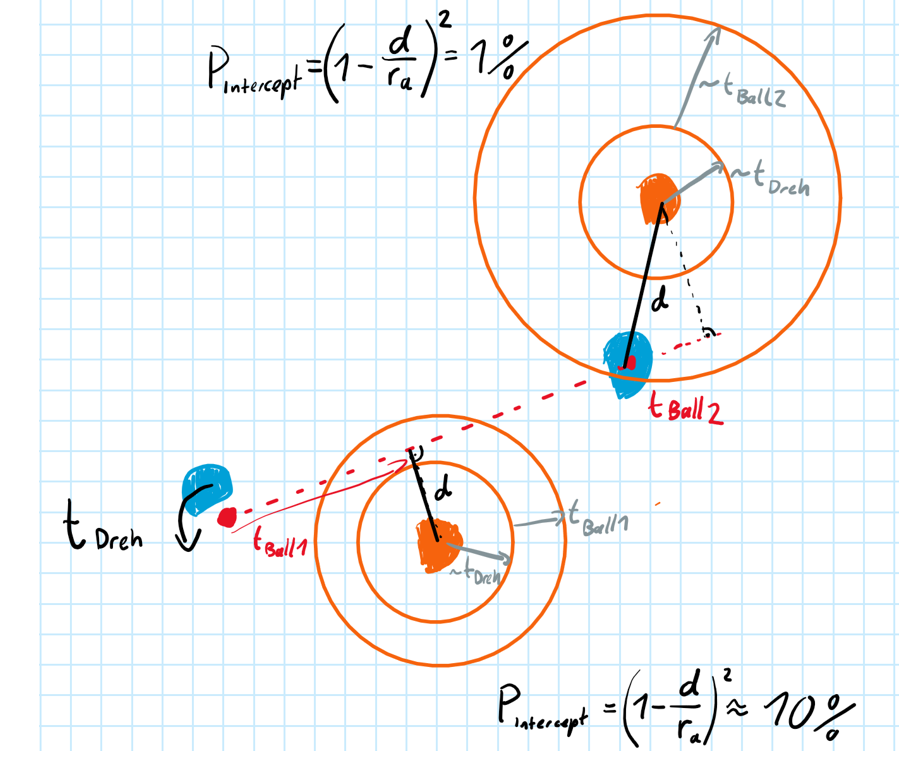 P_intercept = (1 - d/r_a)^2 = 1%
~t_Ball2
~t_Dreh
d
t_Ball2
d
t_Dreh
t_Ball1
~t_Dreh
t_Ball1
P_intercept = (1 - d/r_a)^2 ≈ 10%